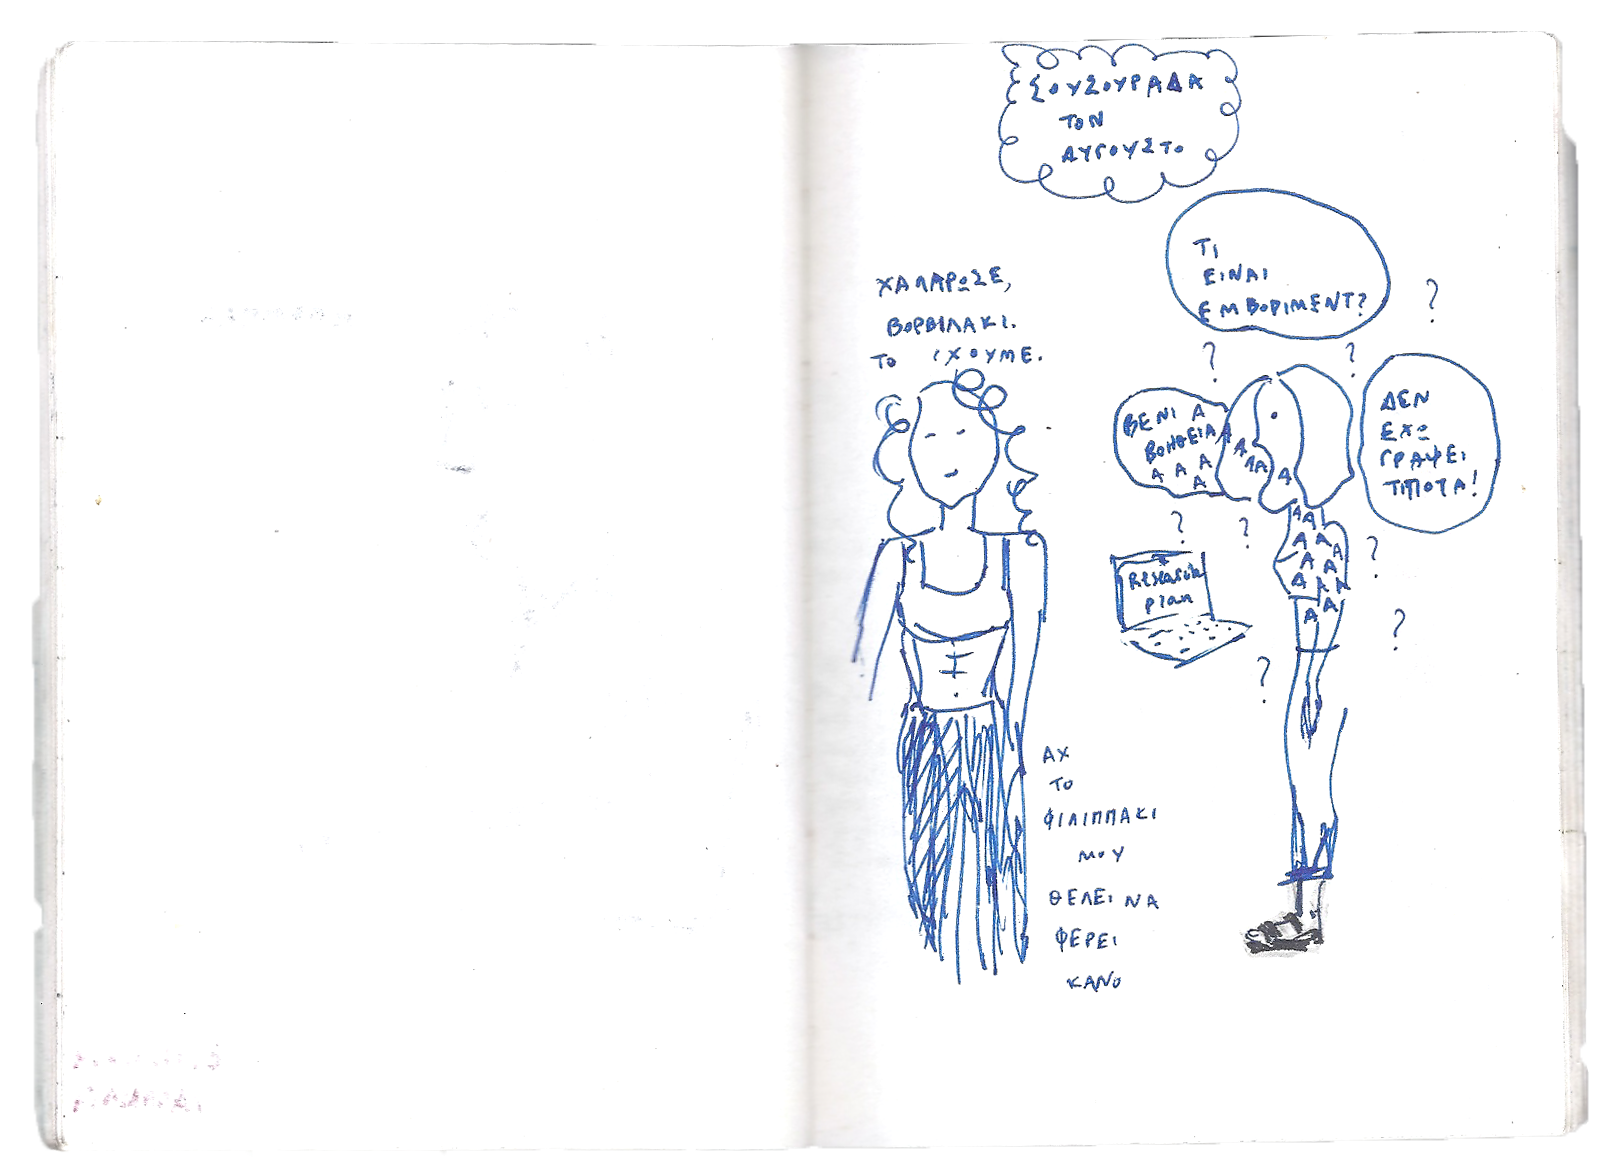 ΣΟΥΣΟΥΡΑΔΑ
ΤΟΝ
ΑΥΓΟΥΣΤΟ
ΤΙ
ΕΙΝΑΙ
ΕΜΒΟΡΙΜΕΝΤ?
ΧΑΛΑΡΩΣΕ,
ΒΟΡΒΙΛΑΚΙ.
ΤΟ ΕΧΟΥΜΕ.
ΒΕΝΙ Α
ΒΟΗΘΕΙΑ Α
Α Α Α
Α
Α
Α Α
Α
ΔΕΝ
ΕΧΩ
ΓΡΑΨΕΙ
ΤΙΠΟΤΑ!
? ? ?
? ? ? ? ?
Α Α
Α Α Α
Α Α
Α Α Α
Α Α
Research
plan
ΑΧ
ΤΟ
ΦΙΛΙΠΠΑΚΙ
ΜΟΥ
ΘΕΛΕΙ ΝΑ
ΦΕΡΕΙ
ΚΑΝΟ